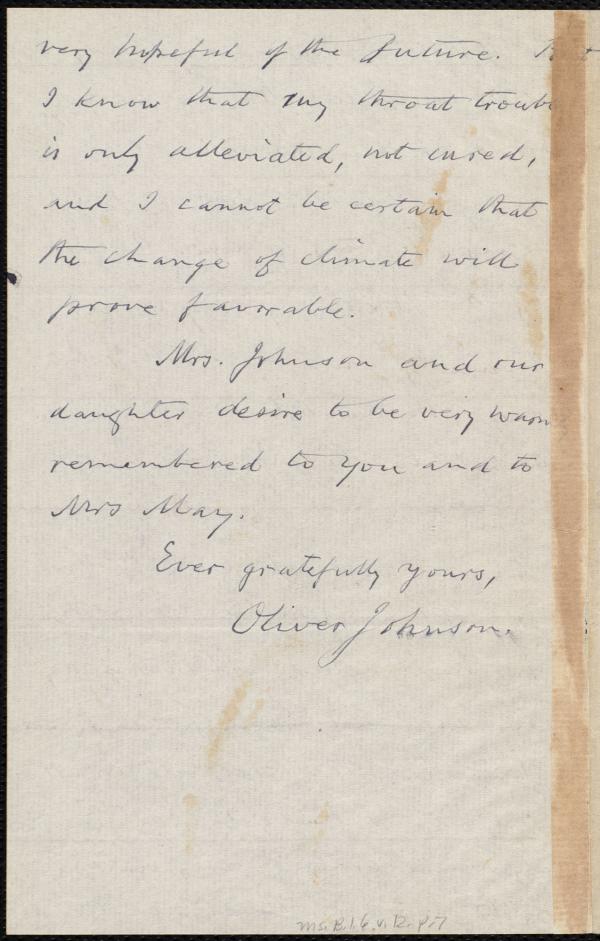 very hopeful of the future. But
I know that my throat troub
is only alleviated, not cured,
and I cannot be certain that
the change of climate will
prove favorable.
Mrs. Johnson and our
daughter desire to be very warm
remembered to you and to
Mrs May.
Ever gratefully yours,
Oliver Johnson.
Ms. B. 1. 6 v. 12. p. 7